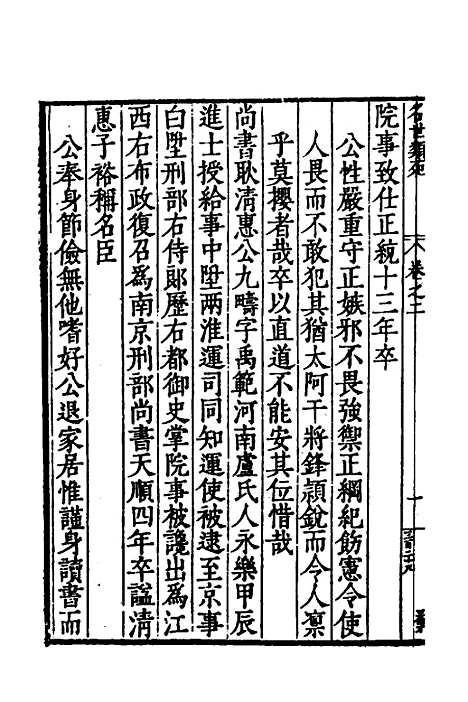 名世類苑 卷之二 一
院事致仕正統十三年卒
公性嚴重守正嫉邪不畏強禦正綱紀飭憲令使
人畏而不敢犯其猶太阿干將鋒頴銳而令人凛
乎莫攖者哉卒以直道不能安其位惜哉
尚書耿清惠公九疇字禹範河南盧氏人永樂甲辰
進士授給事中陞兩淮運司同知運使被逮至京事
白陞刑部右侍郎歷右都御史掌院事被讒出爲江
西右布政復召爲南京刑部尚書天順四年卒謚清
惠子裕稱名臣
公奉身節儉無他嗜好公退家居惟謹身讀書而